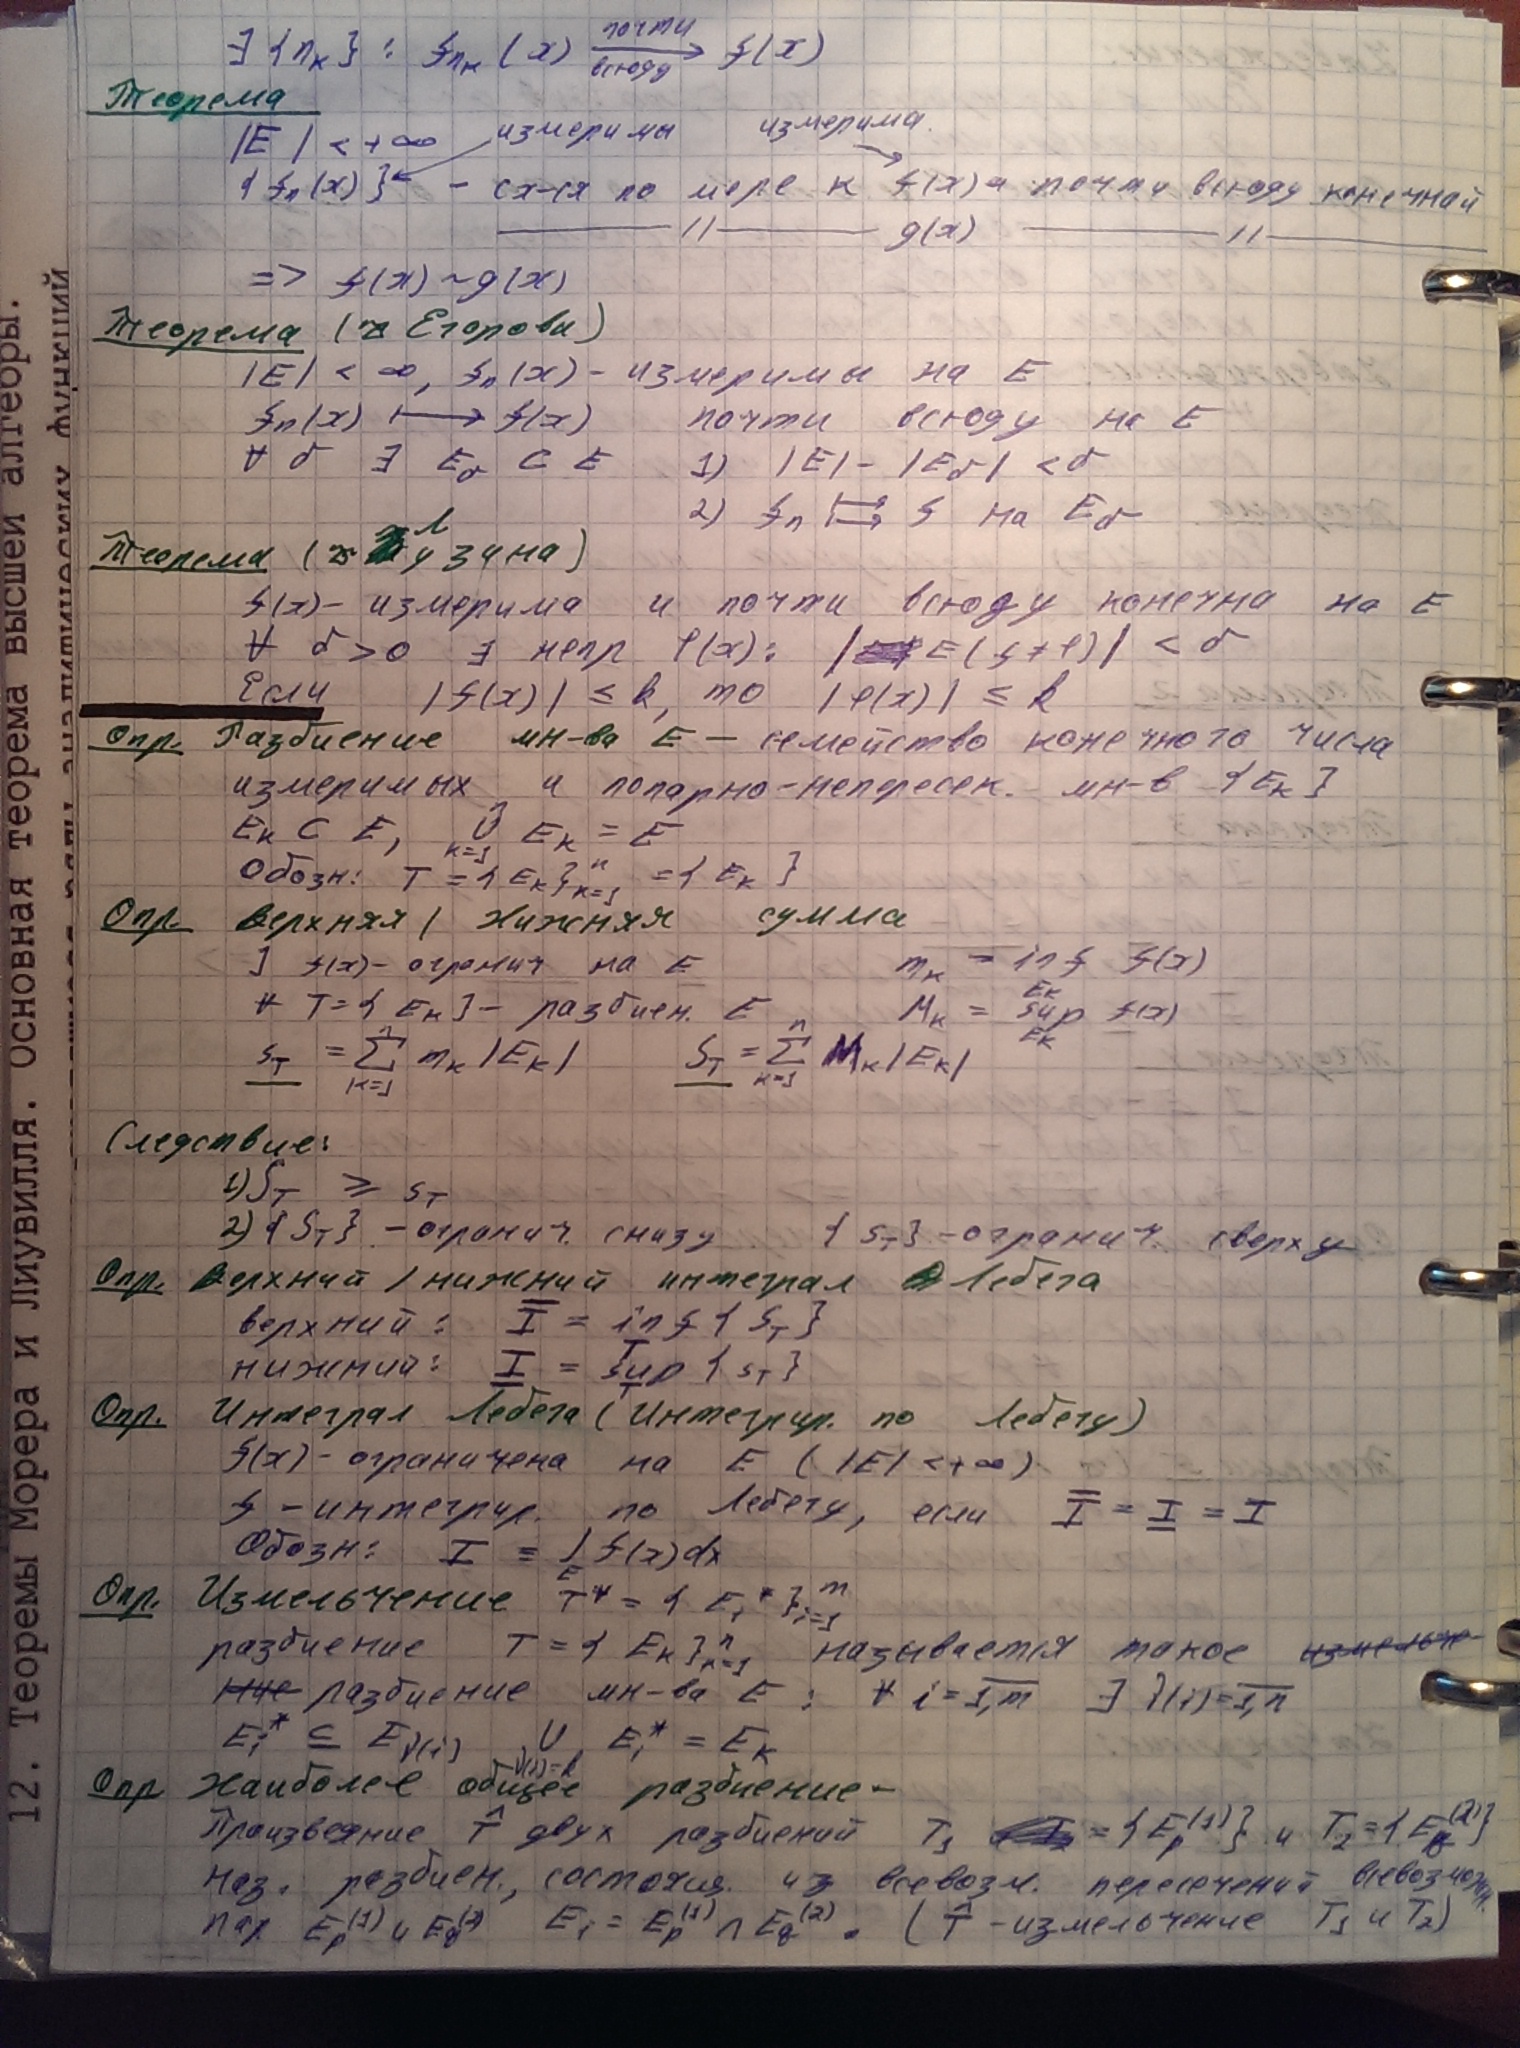 ∃ {n_k} : f_{n_k}(x) почти всюду → f(x)
Теорема
|E| < +∞ измеримы измерима
{f_n(x)} – сх-ся по мере к f(x) почти всюду конечной
—— // —— g(x) —— // ——
=> f(x) ~ g(x)
Теорема ( Егорова)
|E| < ∞, f_n(x) – измеримы на E
f_n(x) ⟼ f(x) почти всюду на E
∀ δ ∃ E_δ ⊂ E 1) |E| – |E_δ| < δ
2) f_n ⇉ f на E_δ
Теорема ( Лузина)
f(x) – измерима и почти всюду конечна на E
∀ δ > 0 ∃ непр φ(x): |E(f ≠ φ)| < δ
Если |f(x)| ≤ k, то |φ(x)| ≤ k
Опр. Разбиение мн-ва E – семейство конечного числа
измеримых и попарно-непересек. мн-в {E_k}
E_k ⊂ E, ⋃_{k=1}^{n} E_k = E
Обозн: T = {E_k}_{k=1}^{n} = {E_k}
Опр. Верхняя / Нижняя сумма
] f(x) – огранич на E m_k = inf_{E_k} f(x)
∀ T = {E_k} – разбиен. E M_k = sup_{E_k} f(x)
s_T = ∑_{k=1}^{n} m_k |E_k| S_T = ∑_{k=1}^{n} M_k |E_k|
Следствие:
1) S_T ≥ s_T
2) {S_T} – огранич. снизу {s_T} – огранич. сверху
Опр. Верхний / нижний интеграл Лебега
верхний: Ī = inf_T {S_T}
нижний: I̲ = sup_T {s_T}
Опр. Интеграл Лебега (Интегрир. по Лебегу)
f(x) – ограничена на E (|E| < +∞)
f – интегрир. по Лебегу, если Ī = I̲ = I
Обозн: I = ∫_E f(x)dx
Опр. Измельчение T* = {E_i*}_{i=1}^{m}
разбиение T = {E_k}_{k=1}^{n} называется такое измельче-
ние разбиение мн-ва E : ∀ i = 1,m ∃ ν(i) = 1,n
E_i* ⊆ E_{ν(i)} ⋃_{ν(i)=k} E_i* = E_k
Опр Наиболее общее разбиение –
Произведние T̂ двух разбиений T_1 = {E_p^(1)} и T_2 = {E_q^(2)}
наз. разбиен., состоящ. из всевозм. пересечений всевозможн.
пар E_p^(1) и E_q^(2) E_i = E_p^(1) ∩ E_q^(2). (T̂ – измельчение T_1 и T_2)
12. Теоремы Морера и Лиувилля. Основная теорема высшей алгебры.